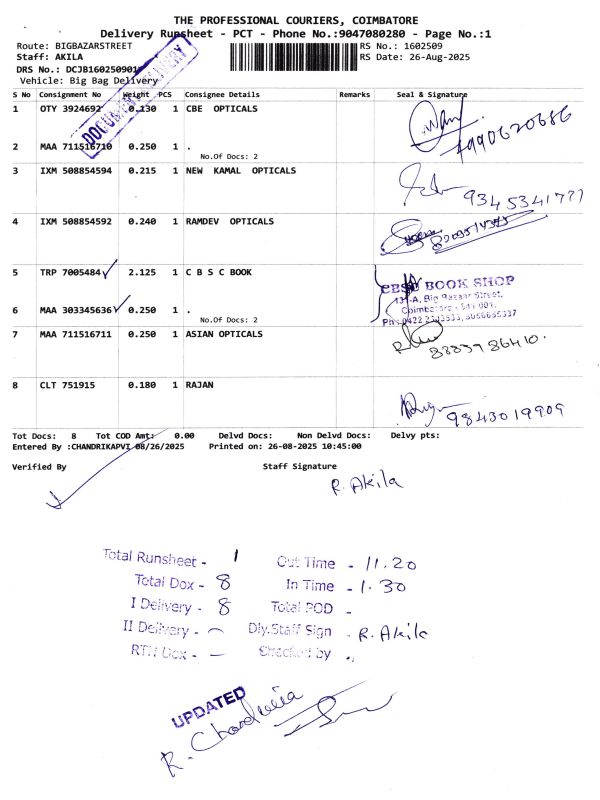 THE PROFESSIONAL COURIERS, COIMBATORE
Delivery Runsheet - PCT - Phone No.:9047080280 - Page No.:1
Route: BIGBAZARSTREET RS No.: 1602509
Staff: AKILA RS Date: 26-Aug-2025
DRS No.: DCJB160250901
Vehicle: Big Bag Delivery
DOCUMENT DELIVERY
S No Consignment No Weight PCS Consignee Details Remarks Seal & Signature
1 OTY 3924692 0.130 1 CBE OPTICALS
7990620686
2 MAA 711516710 0.250 1 .
No.Of Docs: 2
3 IXM 508854594 0.215 1 NEW KAMAL OPTICALS
9345341777
4 IXM 508854592 0.240 1 RAMDEV OPTICALS
5 TRP 7005484 2.125 1 C B S C BOOK
CBSC BOOK SHOP
431-A, Big Bazaar Street,
Coimbatore - 641 001.
6 MAA 303345636 0.250 1 .
No.Of Docs: 2
7 MAA 711516711 0.250 1 ASIAN OPTICALS
8883986410.
8 CLT 751915 0.180 1 RAJAN
9843019909
Tot Docs: 8 Tot COD Amt: 0.00 Delvd Docs: Non Delvd Docs: Delvy pts:
Entered By :CHANDRIKAPVI 08/26/2025 Printed on: 26-08-2025 10:45:00
Verified By Staff Signature
R. Akila
Total Runsheet - 1 Out Time - 11.20
Total Dox - 8 In Time - 1.30
I Delivery - 8 Total POD -
II Delivery - Dly.Staff Sign - R. Akila
RTN Dox - — Checked by
UPDATED
R. Chandrika